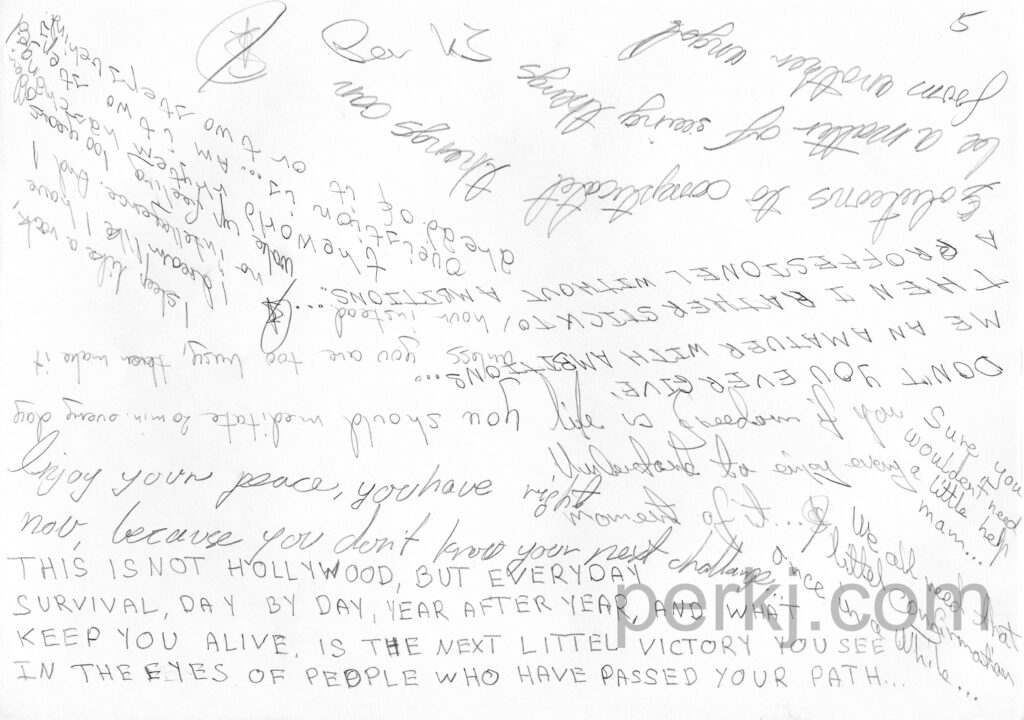 5
things can
be a matter of seeing things
from another angel
Solutions to complicatet
I sleep like a rock,
I dream like I have
no intelligence. And I
wake up feeling 100 years
the world whytem has change
Question is... Am it two steps
ahead of it or two steps behind
DON'T YOU EVER GIVE
ME AN AMATUER WITH AMBITIONS...
THEN I RATHER STICK TO
A PROFFESIONEL WITHOUT AMBITIONS....
You should meditate 20 min. every day
unless you are too busy, then make it
1 hour instead
life is freedom if you
Understand to enjoy every
moment of it....
Sure you
wouldent need
a little help
man...
We all need that
little confirmation
once in a
while...
Enjoy your peace, you have right
now, because you don't know your next challange...
THIS IS NOT HOLLYWOOD, BUT EVERYDAY
SURVIVAL, DAY BY DAY, YEAR AFTER YEAR, AND WHAT
KEEP YOU ALIVE. IS THE NEXT LITTEL VICTORY YOU SEE
IN THE EYES OF PEOPLE WHO HAVE PASSED YOUR PATH...
perkj.com